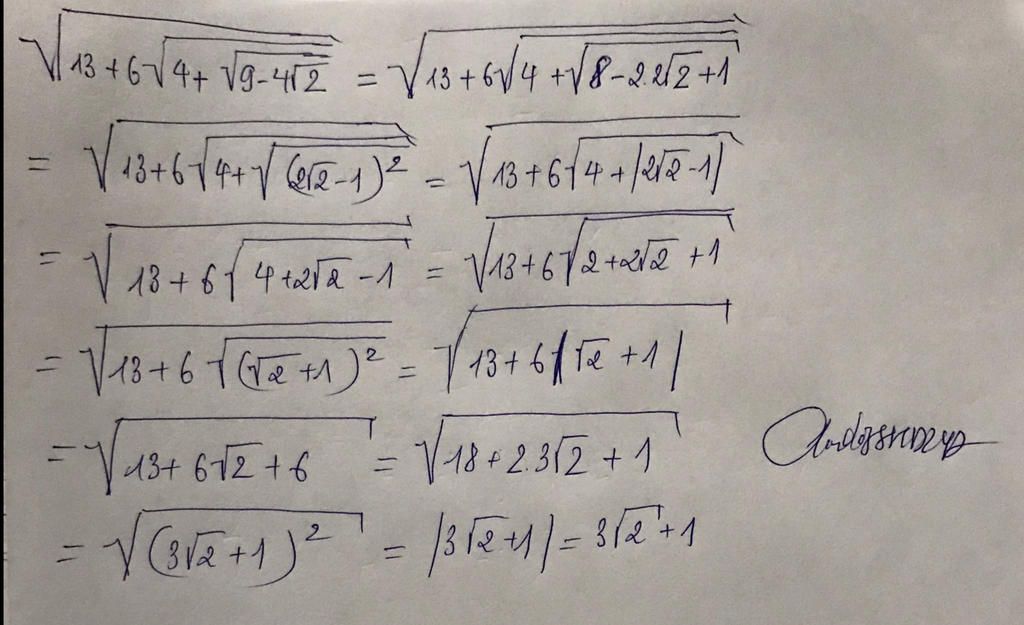 √(13+6√(4+√(9-4√2))) = √(13+6√(4+√(8-2.2√2+1)))
= √(13+6√(4+√((2√2-1)²))) = √(13+6√(4+|2√2-1|))
= √(13+6√(4+2√2-1)) = √(13+6√(2+2√2+1))
= √(13+6√((√2+1)²)) = √(13+6|√2+1|)
= √(13+6√2+6) = √(18+2.3√2+1)
= √((3√2+1)²) = |3√2+1| = 3√2+1